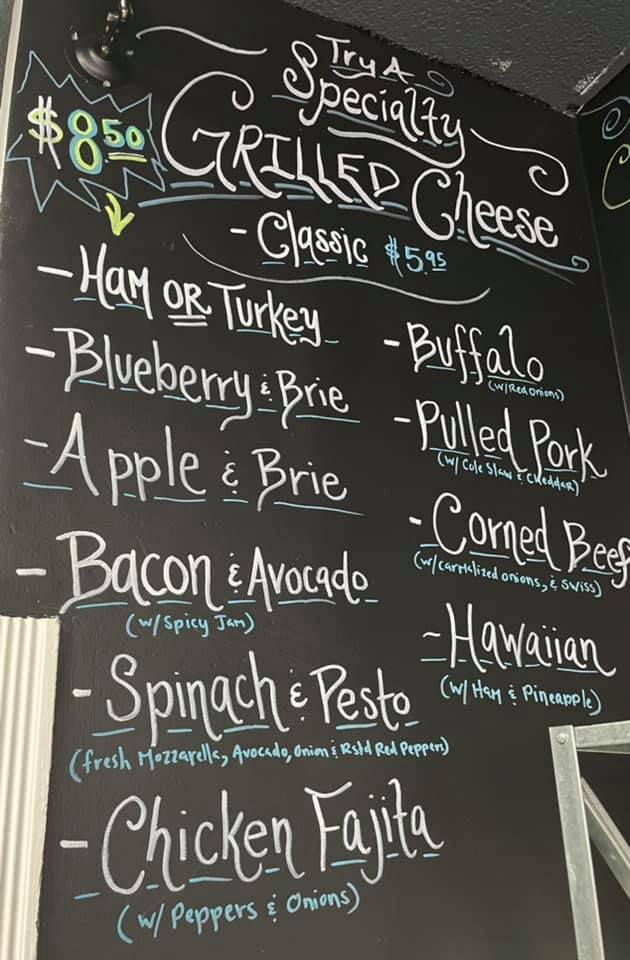 Try A
Specialty
$8.50
GRILLED Cheese
- Classic $5.95
- Ham OR Turkey
- Blueberry & Brie
- Apple & Brie
- Bacon & Avocado
(w/ Spicy Jam)
- Spinach & Pesto
(fresh Mozzarella, Avocado, Onion & Rstd Red Peppers)
- Chicken Fajita
(w/ Peppers & Onions)
- Buffalo
(w/ Red Onions)
- Pulled Pork
(w/ Cole Slaw & Cheddar)
- Corned Beef
(w/ carmalized onions, & Swiss)
- Hawaiian
(w/ Ham & Pineapple)